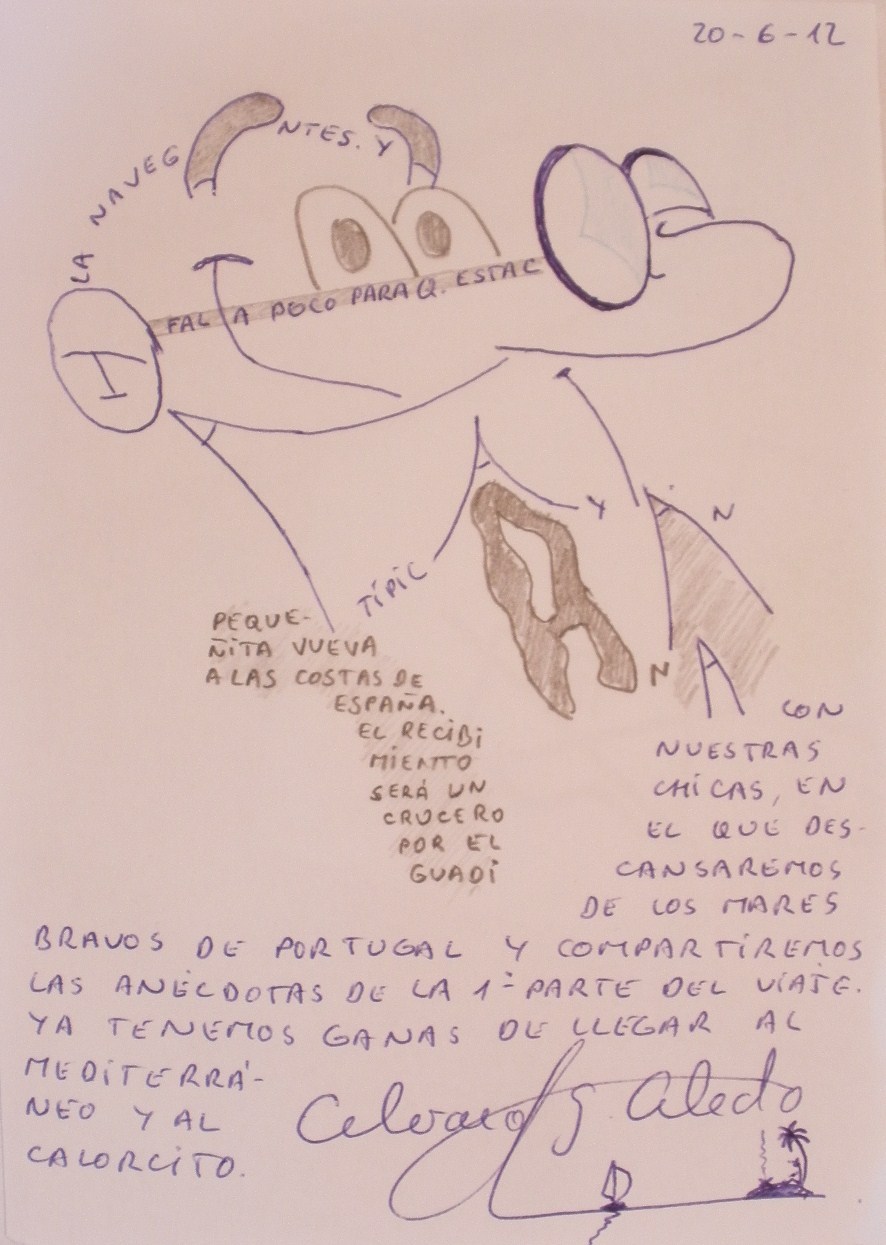 20-6-12
LA NAVEG
NTES. Y
FALTA POCO PARA Q. ESTAC
I
TÍPIC
Y
N
N
A
PEQUE-
ÑITA VUEVA
A LAS COSTAS DE
ESPAÑA.
EL RECIBI
MIENTO
SERÁ UN
CRUCERO
POR EL
GUADI
CON
NUESTRAS
CHICAS, EN
EL QUE DES-
CANSAREMOS
DE LOS MARES
BRAVOS DE PORTUGAL Y COMPARTIREMOS
LAS ANÉCDOTAS DE LA 1ª PARTE DEL VIAJE.
YA TENEMOS GANAS DE LLEGAR AL
MEDITERRÁ-
NEO Y AL
CALORCITO.
Aledo